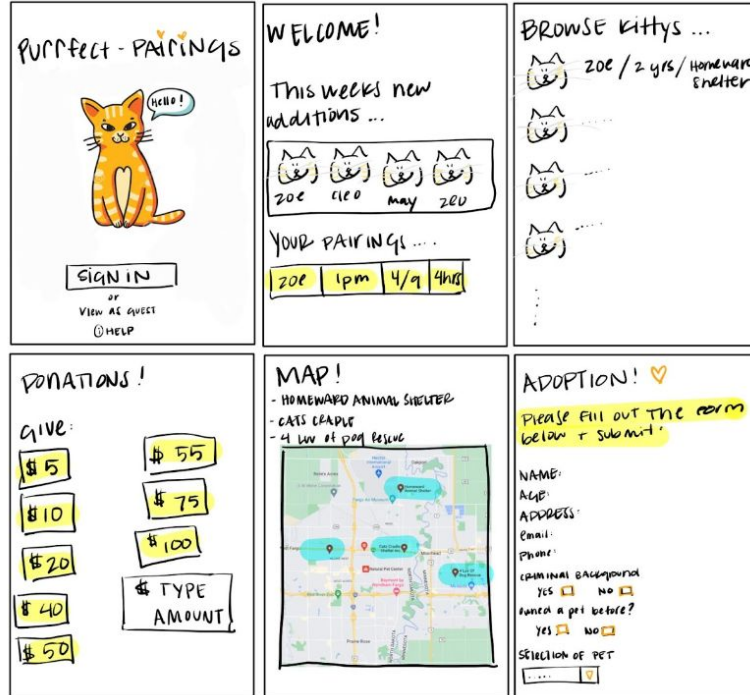 Purrfect-PAIRINGS
Hello!
SIGN IN
or
VIEW AS GUEST
HELP
WELCOME!
This weeks new
additions...
zoe cleo may zeo
YOUR PAIRINGS....
zoe 1pm 4/9 4hrs
BROWSE kittys ...
zoe / 2 yrs / Homeward
shelter
DONATIONS!
GIVE:
$ 5
$ 10
$ 20
$ 40
$ 50
$ 55
$ 75
$ 100
$ TYPE
AMOUNT
MAP!
- HOMEWARD ANIMAL SHELTER
- CATS CRADLE
- 4 Luv of Dog Rescue
Moorhead
ADOPTION!
Please Fill out The form
below + submit:
NAME:
AGE:
ADDRESS:
email:
Phone:
CRIMINAL BACKGROUND
YES NO
owned a pet before?
Yes NO
SELECTION OF PET